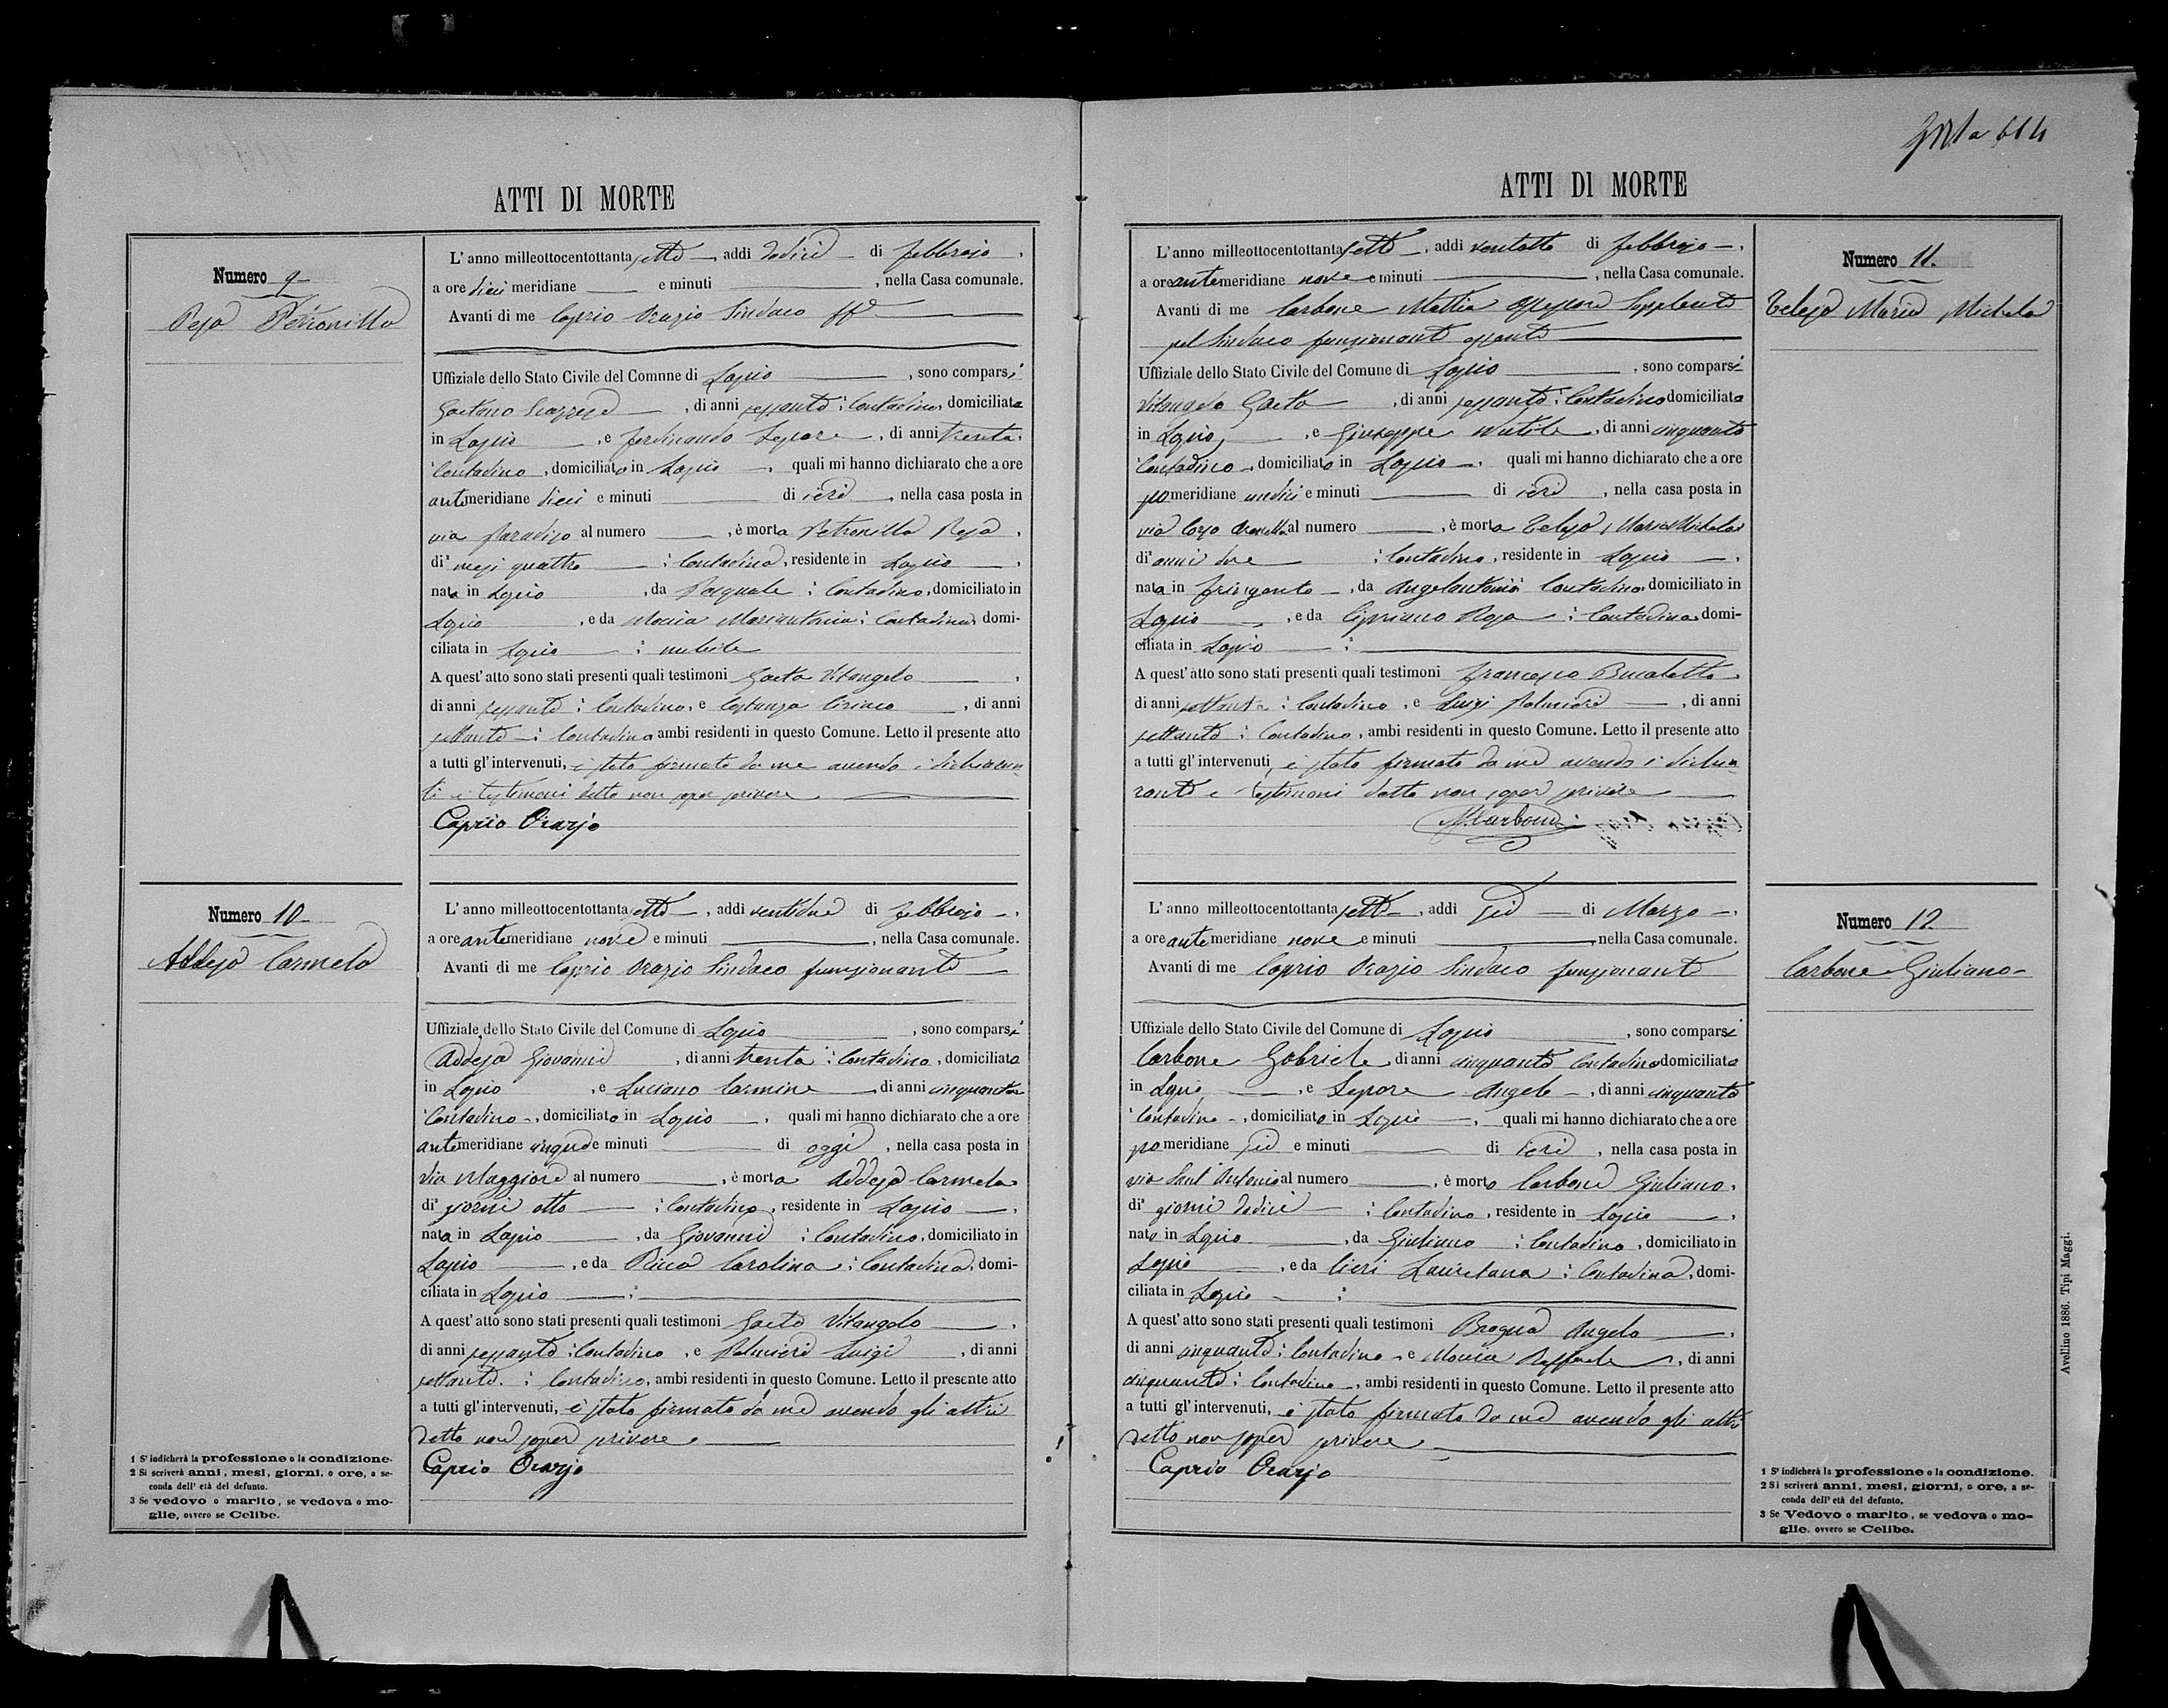 ATTI DI MORTE
Numero 9
Petronilla
L'anno milleottocentottanta sette, addì dodici di febbrajo,
a ore dieci meridiane e minuti, nella Casa comunale.
Avanti di me Caprio Orazio Sindaco ff
Uffiziale dello Stato Civile del Comnne di Lapio, sono comparsi
Gaetano, di anni sessanta; Contadino, domiciliato
in Lapio, e Ferdinando Lepore, di anni trenta;
Contadino, domiciliato in Lapio, quali mi hanno dichiarato che a ore
antemeridiane dieci e minuti di ieri, nella casa posta in
via Paradiso al numero, è morta Petronilla
di mesi quattro; Contadina, residente in Lapio,
nata in Lapio, da Pasquale; Contadino, domiciliato in
Lapio, e da Moccia Mariantonia; Contadina, domi-
ciliata in Lapio; nubile
A quest'atto sono stati presenti quali testimoni Gaeta Vitangelo,
di anni sessanta; Contadino, e Costanza Ciriaco, di anni
settanta; Contadino ambi residenti in questo Comune. Letto il presente atto
a tutti gl'intervenuti, è stato firmato da me avendo i dichiaran
ti e testimoni detto non saper scrivere
Caprio Orazio
Numero 10
Addesa Carmela
L'anno milleottocentottanta sette, addì ventidue di febbrajo,
a ore antemeridiane nove e minuti, nella Casa comunale.
Avanti di me Caprio Orazio Sindaco funzionante
Uffiziale dello Stato Civile del Comune di Lapio, sono comparsi
Addesa Giovanni, di anni trenta; Contadino, domiciliato
in Lapio, e Luciano Carmine, di anni cinquanta
Contadino, domiciliato in Lapio, quali mi hanno dichiarato che a ore
antemeridiane cinque e minuti di oggi, nella casa posta in
Via Maggiore al numero, è morta Addesa Carmela
di giorni otto; Contadina, residente in Lapio,
nata in Lapio, da Giovanni; Contadino, domiciliato in
Lapio, e da Carolina; Contadina, domi-
ciliata in Lapio;
A quest'atto sono stati presenti quali testimoni Gaeta Vitangelo,
di anni sessanta; Contadino, e Palmieri Luigi, di anni
settanta; Contadino, ambi residenti in questo Comune. Letto il presente atto
a tutti gl'intervenuti, è stato firmato da me avendo gli altri
detto non saper scrivere
Caprio Orazio
1 S'indicherà la professione o la condizione.
2 Si scriverà anni, mesi, giorni, o ore, a se-
conda dell'età del defunto.
3 Se vedovo o marito, se vedova o mo-
glie, ovvero se Celibe.
ATTI DI MORTE
L'anno milleottocentottanta sette, addì ventotto di febbrajo,
a ore antemeridiane nove e minuti, nella Casa comunale.
Avanti di me Carbone Mattia Assessore Supplente
pel Sindaco funzionante assente
Uffiziale dello Stato Civile del Comune di Lapio, sono comparsi
Vitangelo Gaeta, di anni sessanta; Contadino domiciliato
in Lapio, e Giuseppe Nutile, di anni cinquanta
Contadino, domiciliato in Lapio, quali mi hanno dichiarato che a ore
pomeridiane undici e minuti di ieri, nella casa posta in
via Corso al numero, è morta Telesa Maria Michela
di anni due; Contadina, residente in Lapio,
nata in Frigento, da Angelantonio Contadino, domiciliato in
Lapio, e da Cipriano Rosa; Contadina, domi-
ciliata in Lapio;
A quest'atto sono stati presenti quali testimoni Francesco
di anni settanta; Contadino, e Luigi Palmieri, di anni
settanta; Contadino, ambi residenti in questo Comune. Letto il presente atto
a tutti gl'intervenuti, è stato firmato da me avendo i dichia
ranti e testimoni detto non saper scrivere
M. Carbone
Numero 11.
Telesa Maria Michela
L'anno milleottocentottanta sette, addì sei di Marzo,
a ore antemeridiane nove e minuti, nella Casa comunale.
Avanti di me Caprio Orazio Sindaco funzionante
Uffiziale dello Stato Civile del Comune di Lapio, sono comparsi
Carbone Gabriele, di anni cinquanta Contadino domiciliato
in Lapio, e Lepore Angelo, di anni cinquanta
Contadino, domiciliato in Lapio, quali mi hanno dichiarato che a ore
pomeridiane sei e minuti di ieri, nella casa posta in
via Sant'Antonio al numero, è morto Carbone Giuliano,
di giorni dodici; Contadino, residente in Lapio,
nato in Lapio, da Giuliano; Contadino, domiciliato in
Lapio, e da Lauretana; Contadina, domi-
ciliata in Lapio;
A quest'atto sono stati presenti quali testimoni Angelo,
di anni cinquanta; Contadino, e Moccia Raffaele, di anni
cinquanta; Contadino, ambi residenti in questo Comune. Letto il presente atto
a tutti gl'intervenuti, è stato firmato da me avendo gli altri
detto non saper scrivere
Caprio Orazio
Numero 12
Carbone Giuliano
1 S'indicherà la professione o la condizione.
2 Si scriverà anni, mesi, giorni, o ore, a se-
conda dell'età del defunto.
3 Se Vedovo o marito, se vedova o mo-
glie, ovvero se Celibe.
Avellino 1886. Tipi Maggi.